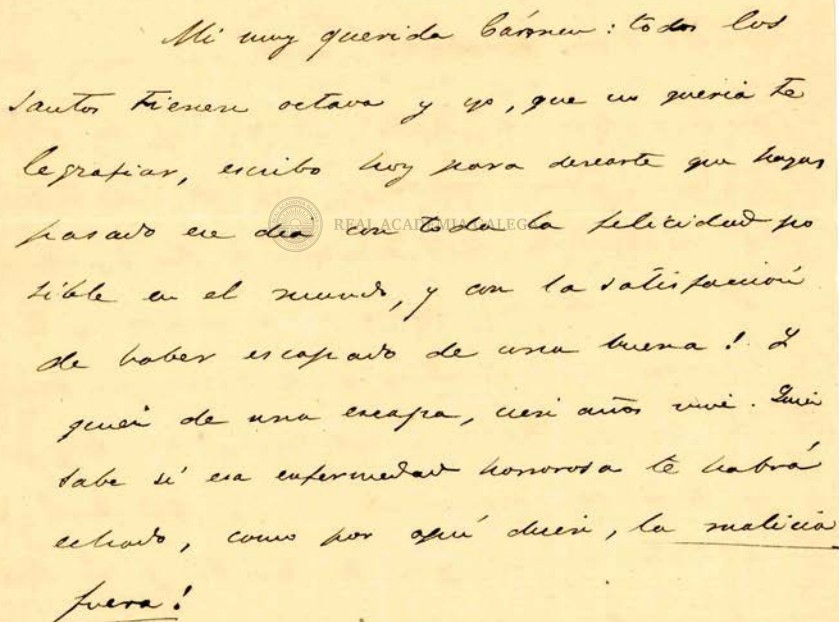 Mi muy querida Cármen: todos los
santos tienen octava y yo, que no queria te
legrafiar, escribo hoy para desearte que hayas
pasado ese dia con toda la felicidad po
sible en el mundo, y con la satisfacción
de haber escapado de una buena! Y
quien de una escapa, cien años vive. Quien
sabe si esa enfermedad horrorosa te habrá
echado, como por aquí dicen, la malicia
fuera!
REAL ACADEMIA GALEGA